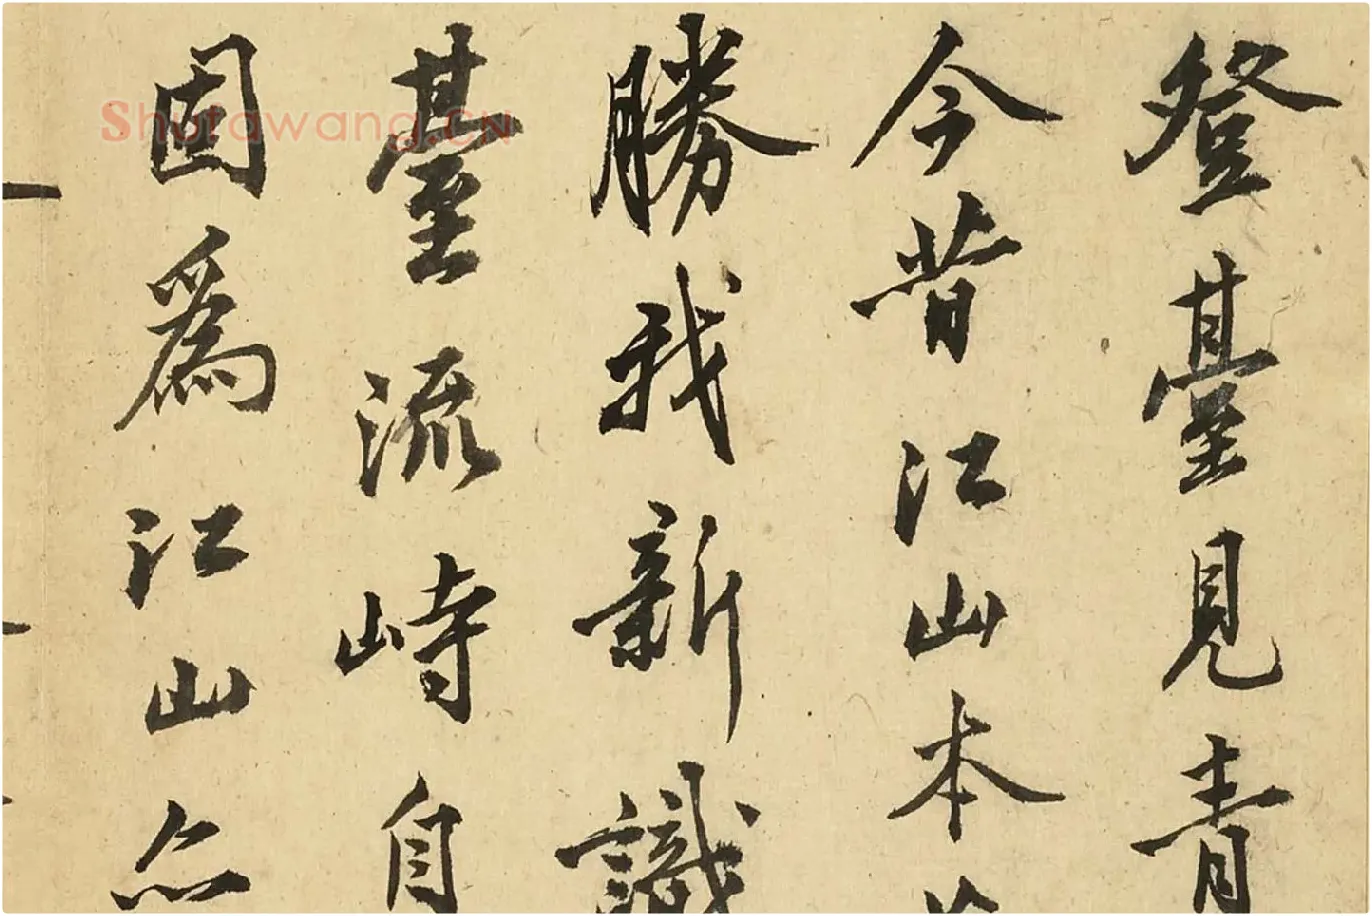 登臺見青
今昔江山本
勝我新識
臺流峙自
固為江山亦
Shufawang.cn